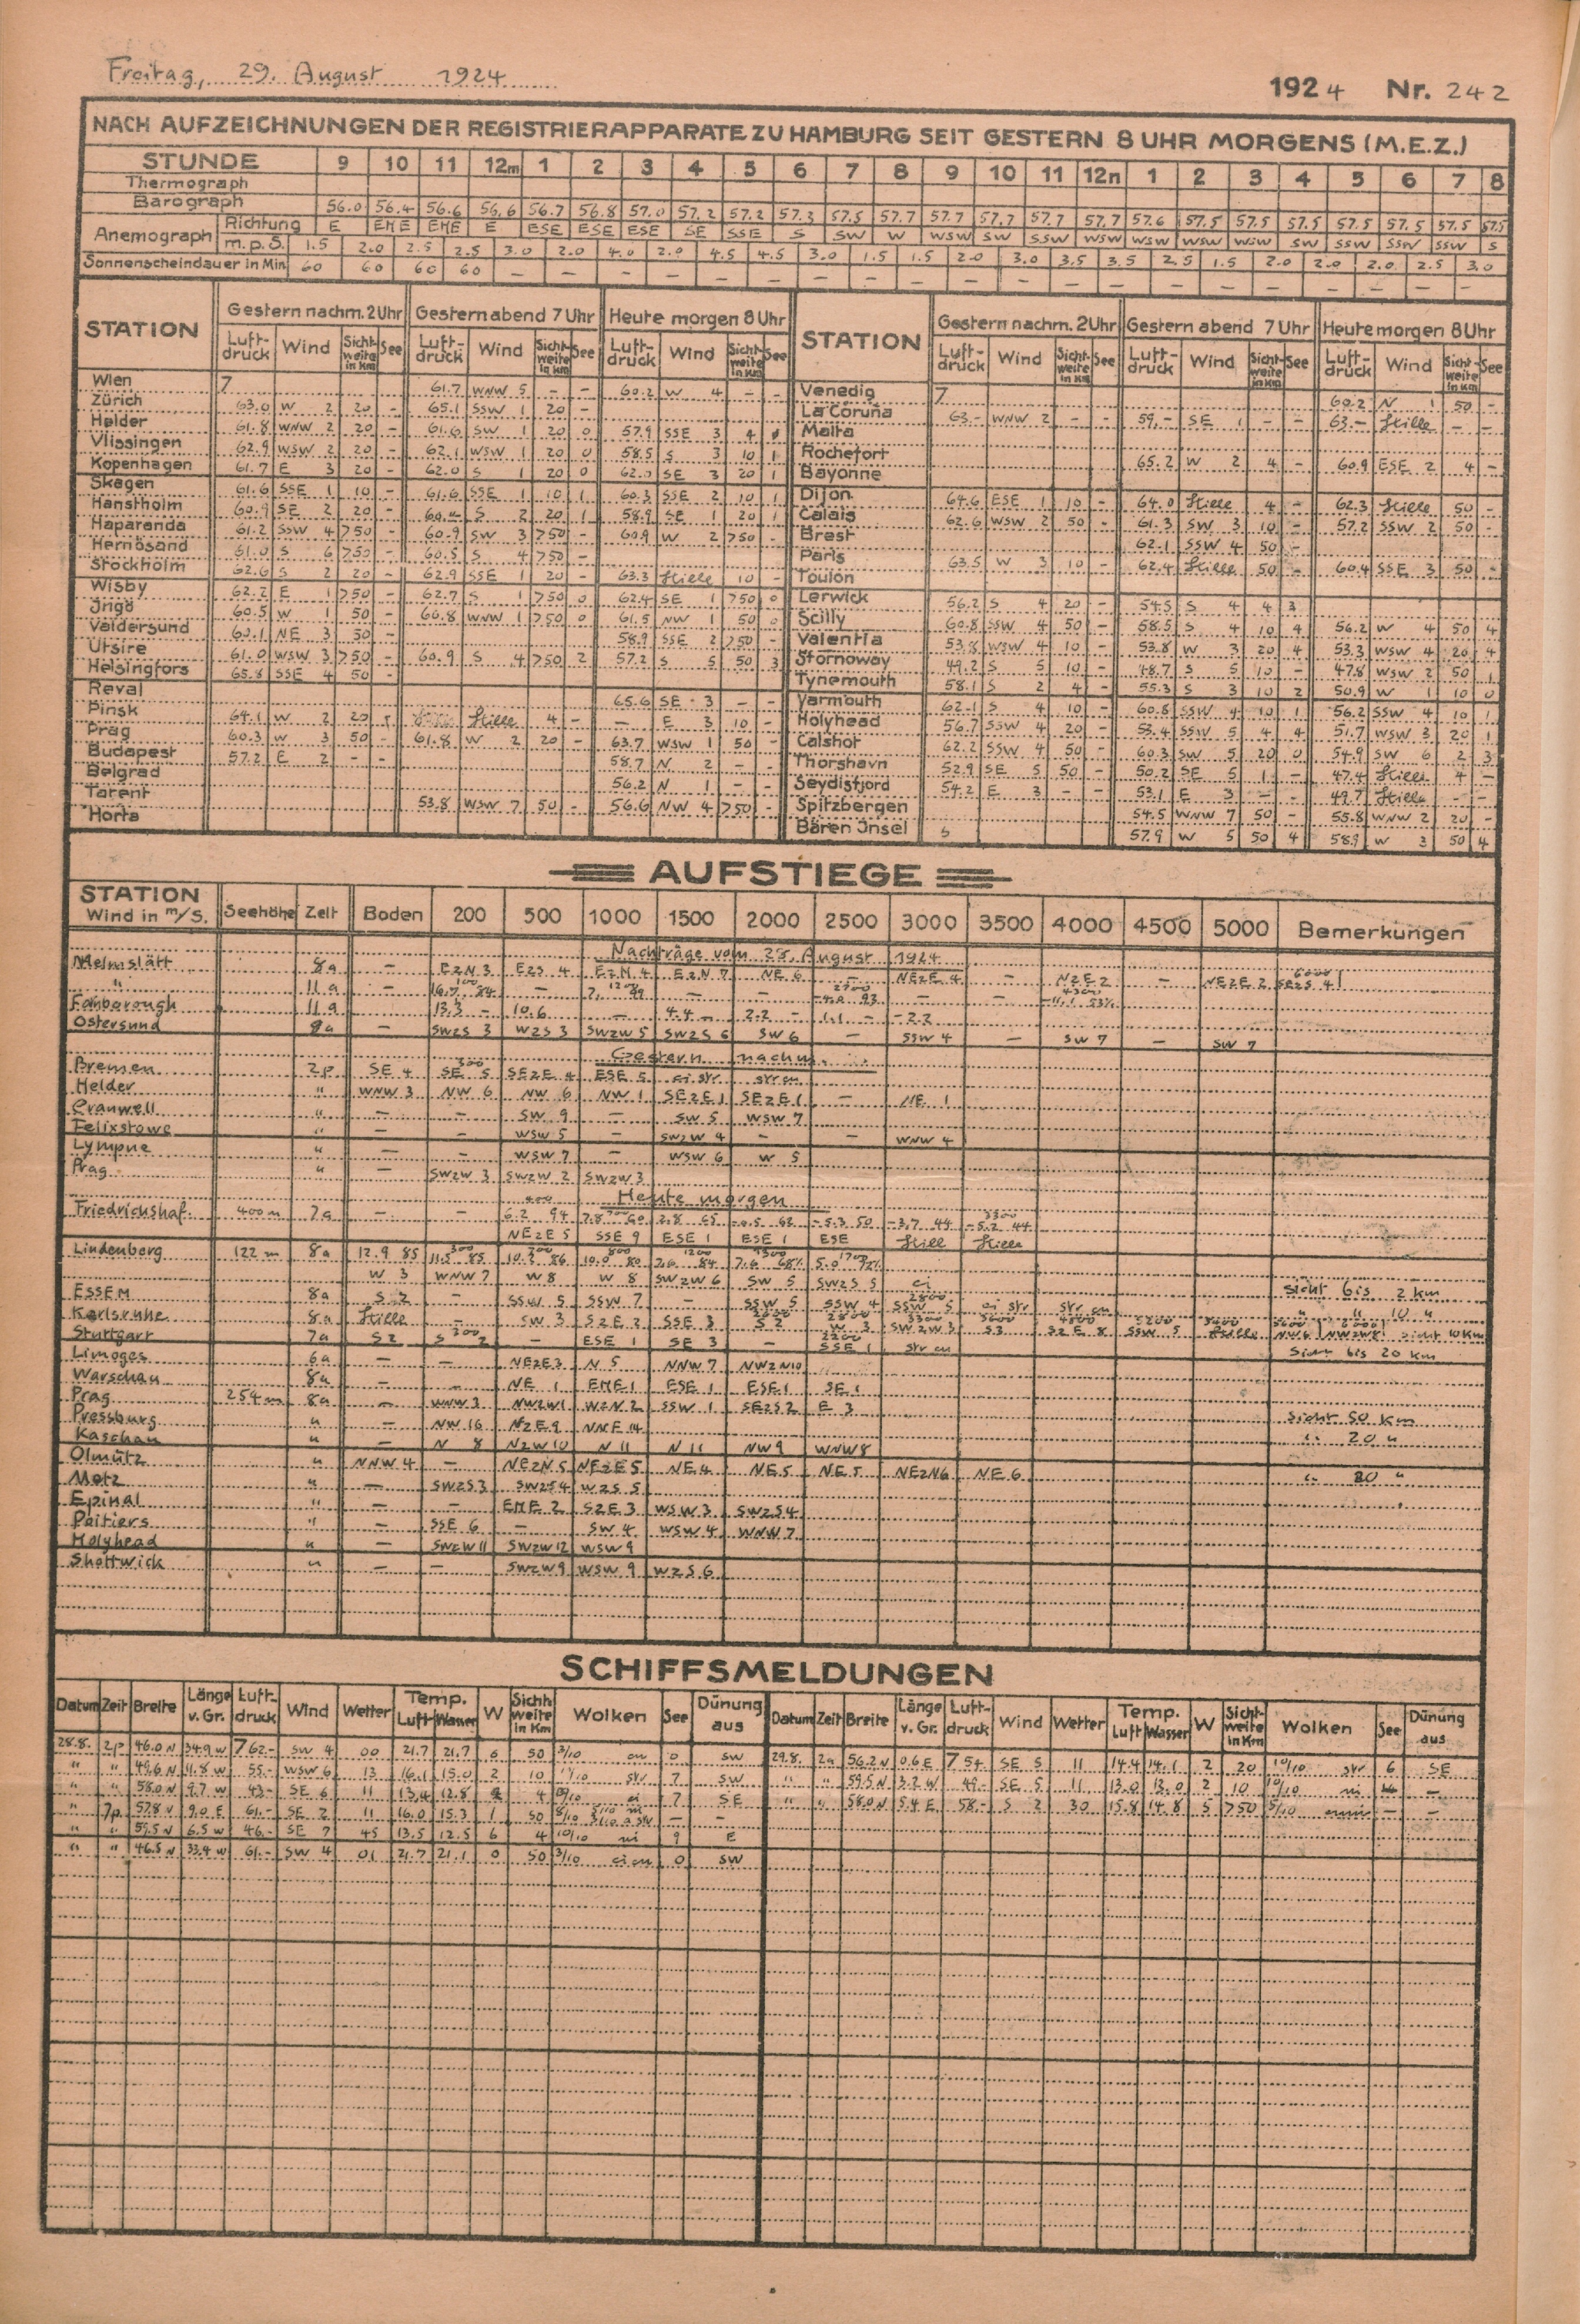 Freitag, 29. August 1924
1924 Nr. 242
NACH AUFZEICHNUNGEN DER REGISTRIERAPPARATE ZU HAMBURG SEIT GESTERN 8 UHR MORGENS (M.E.Z.)
STUNDE 9 10 11 12m 1 2 3 4 5 6 7 8 9 10 11 12n 1 2 3 4 5 6 7 8
Thermograph
Barograph 56.0 56.4 56.6 56.6 56.7 56.8 57.0 57.2 57.2 57.3 57.5 57.7 57.7 57.7 57.7 57.7 57.6 57.5 57.5 57.5 57.5 57.5 57.5 57.5
Anemograph Richtung E ENE ENE E ESE ESE ESE SE SSE S SW W WSW SW SSW WSW WSW WSW WSW SW SSW SSW SSW S
m.p.S. 1.5 2.0 2.5 2.5 3.0 2.0 4.0 2.0 4.5 4.5 3.0 1.5 1.5 2.0 3.0 3.5 3.5 2.5 1.5 2.0 2.0 2.0 2.5 3.0
Sonnenscheindauer in Min. 60 60 60 60 – – – – – – – – – – – – – – – – – – – –
STATION Gestern nachm. 2 Uhr Gestern abend 7 Uhr Heute morgen 8 Uhr STATION Gestern nachm. 2 Uhr Gestern abend 7 Uhr Heute morgen 8 Uhr
Luft-druck Wind Sicht-weite in Km See Luft-druck Wind Sicht-weite in Km See Luft-druck Wind Sicht-weite in Km See Luft-druck Wind Sicht-weite in Km See Luft-druck Wind Sicht-weite in Km See Luft-druck Wind Sicht-weite in Km See
Wien 7 61.7 WNW 5 – – 60.2 W 4 – – Venedig 7 60.2 N 1 50 –
Zürich 63.0 W 2 20 – 65.1 SSW 1 20 – La Coruña 63.– WNW 2 – – 59.– SE 1 – – 63.– Stille – –
Helder 61.8 WNW 2 20 – 61.6 SW 1 20 0 57.9 SSE 3 4 Malta
Vlissingen 62.9 WSW 2 20 – 62.1 WSW 1 20 0 58.5 S 3 10 1 Rochefort 65.2 W 2 4 – 60.9 ESE 2 4 –
Kopenhagen 61.7 E 3 20 – 62.0 S 1 20 0 62.0 SE 3 20 1 Bayonne
Skagen 61.6 SSE 1 10 – 61.6 SSE 1 10 1 60.3 SSE 2 10 1 Dijon 64.6 ESE 1 10 – 64.0 Stille 4 – 62.3 Stille 50 –
Hanstholm 60.9 SE 2 20 – S 2 20 1 58.9 SE 1 20 1 Calais 62.6 WSW 2 50 – 61.3 SW 3 10 – 57.2 SSW 2 50 –
Haparanda 61.2 SSW 4 >50 – 60.9 SW 3 >50 – 60.9 W 2 >50 – Brest 62.1 SSW 4 50 –
Hernösand 61.0 S 6 >50 – 60.5 S 4 >50 – Paris 63.5 W 3 10 – 62.4 Stille 50 – 60.4 SSE 3 50 –
Stockholm 62.6 S 2 20 – 62.9 SSE 1 20 – 63.3 Stille 10 – Toulon
Wisby 62.2 E 1 >50 – 62.7 S 1 >50 0 62.4 SE 1 >50 0 Lerwick 56.2 S 4 20 – 54.5 S 4 4 3
Ingö 60.5 W 1 50 – 60.8 WNW 1 >50 0 61.5 NW 1 50 0 Scilly 60.8 SSW 4 50 – 58.5 S 4 10 4 56.2 W 4 50 4
Valdersund 60.1 NE 3 50 – 58.9 SSE 2 >50 – Valentia 53.8 WSW 4 10 – 53.8 W 3 20 4 53.3 WSW 4 20 4
Utsire 61.0 WSW 3 >50 – 60.9 S 4 >50 2 57.2 S 5 50 3 Stornoway 49.2 S 5 10 – 48.7 S 5 10 – 47.8 WSW 2 50 1
Helsingfors 65.8 SSE 4 50 – Tynemouth 58.1 S 2 4 – 55.3 S 3 10 2 50.9 W 1 10 0
Reval 65.6 SE 3 – – Yarmouth 62.1 S 4 10 – 60.8 SSW 4 10 1 56.2 SSW 4 10 1
Pinsk 64.1 W 2 20 – Stille 4 – – E 3 10 – Holyhead 56.7 SSW 4 20 – 53.4 SSW 5 4 4 51.7 WSW 3 20 1
Prag 60.3 W 3 50 – 61.8 W 2 20 – 63.7 WSW 1 50 – Calshot 62.2 SSW 4 50 – 60.3 SW 5 20 0 54.9 SW 6 2 3
Budapest 57.2 E 2 – – 58.7 N 2 – – Thorshavn 52.9 SE 5 50 – 50.2 SE 5 1 – 47.4 Stille 4 –
Belgrad 56.2 N 1 – – Seydisfjord 54.2 E 3 – – 53.1 E 3 – – 49.7 Stille – –
Tarent 53.8 WSW 7 50 – 56.6 NW 4 >50 – Spitzbergen 54.5 WNW 7 50 – 55.8 WNW 2 20 –
Horta Bären Insel 57.9 W 5 50 4 58.9 W 3 50 4
AUFSTIEGE
STATION Wind in m/S. Seehöhe Zeit Boden 200 500 1000 1500 2000 2500 3000 3500 4000 4500 5000 Bemerkungen
Nachträge vom 28. August 1924
Melmslätt 8a – EzN 3 EzS 4 EzN 4 EzN 7 NE 6 – NEzE 4 – NzE 2 – NEzE 2 6000 SEzS 4
" 11a – – – –
Farnborough 11a 13.3 – 10.6 – 4.4 – 2.2 – 1.1 – -2.2
Östersund 8a – SWzS 3 WzS 3 SWzW 5 SWzS 6 SW 6 SSW 4 – SW 7 – SW 7
Gestern nachm.
Bremen 2p SE 4 300 SE 5 SEzE 4 ESE 5 ci str str cu
Helder " WNW 3 NW 6 NW 6 NW 1 SEzE 1 SEzE 1 – NE 1
Cranwell " – – SW 9 – SW 5 WSW 7
Felixstowe " – – WSW 5 – SWzW 4 – – WNW 4
Lympne " – – WSW 7 – WSW 6 W 5
Prag " – SWzW 3 SWzW 2 SWzW 3
Heute morgen
Friedrichshaf. 400 m 7a – – 6.2 94 2.8 65 -0.5 62 -5.3 50 -3.7 44 3300 -5.2 44
NEzE 5 SSE 9 ESE 1 ESE 1 ESE Still Stille
Lindenberg 122 m 8a 12.9 85 300 11.5 85 10.2 86 800 10.0 80 1200 84 68% 5.0
W 3 WNW 7 W 8 W 8 SWzW 6 SW 5 SWzS 5 ci
ESSEM 8a S 2 – SSW 5 SSW 7 – SSW 5 SSW 4 2800 SSW 5 ci str str cu Sicht bis 2 km
Karlsruhe 8a Stille – SW 3 SzE 2 SSE 3 S 2 W 3 SWzW 3 S 3 SzE 8 SSW 5 Stille NW 6 NWzW 8 " " 10 " Sicht 10 Km
Stuttgart 7a S 2 300 S 2 – ESE 1 SE 3 – 2200 SSE 1 str cu Sicht bis 20 km
Limoges 6a – – NEzE 3 N 5 NNW 7 NWzN 10
Warschau 8a – – NE 1 ENE 1 ESE 1 ESE 1 SE 1
Prag 254 m 8a – WNW 3 NWzW 1 WzN 2 SSW 1 SEzS 2 E 3 Sicht 50 km
Pressburg " – NW 16 NzE 9 NNE 14 " 20 "
Kaschau " – N 8 NzW 10 N 11 N 11 NW 9 WNW 8
Olmütz " NNW 4 – NEzN 5 NEzE 5 NE 4 NE 5 NE 5 NEzN 6 NE 6 " 80 "
Metz " – SWzS 3 SWzS 4 WzS 5
Epinal " – – ENE 2 SzE 3 WSW 3 SWzS 4
Poitiers " – SSE 6 – SW 4 WSW 4 WNW 7
Holyhead " – SWzW 11 SWzW 12 WSW 9
Shottwick " – – SWzW 9 WSW 9 WzS 6
SCHIFFSMELDUNGEN
Datum Zeit Breite Länge v. Gr. Luft-druck Wind Wetter Temp. Luft Wasser W Sicht-weite in Km Wolken See Dünung aus Datum Zeit Breite Länge v. Gr. Luft-druck Wind Wetter Temp. Luft Wasser W Sicht-weite in Km Wolken See Dünung aus
28.8. 2p 46.0 N 34.9 W 762.– SW 4 00 21.7 21.7 6 50 3/10 cu 0 SW 29.8. 2a 56.2 N 0.6 E 754 SE 5 11 14.4 14.1 2 20 10/10 str 6 SE
" " 49.6 N 11.8 W 55.– WSW 6 13 16.1 15.0 2 10 str 7 SW " " 59.5 N 3.2 W 49.– SE 5 11 13.0 13.0 2 10 10/10 ni –
" " 58.0 N 9.7 W 43.– SE 6 11 13.4 12.8 4 ci 7 SE " " 58.0 N 5.4 E 58.– S 2 30 15.8 14.8 5 >50 5/10 – –
" 7p 57.8 N 9.0 E 61.– SE 2 11 16.0 15.3 1 50 8/10 – –
" " 59.5 N 6.5 W 46.– SE 7 45 13.5 12.5 6 4 10/10 ni 9 E
" " 46.5 N 33.4 W 61.– SW 4 01 21.7 21.1 0 50 3/10 ci cu 0 SW